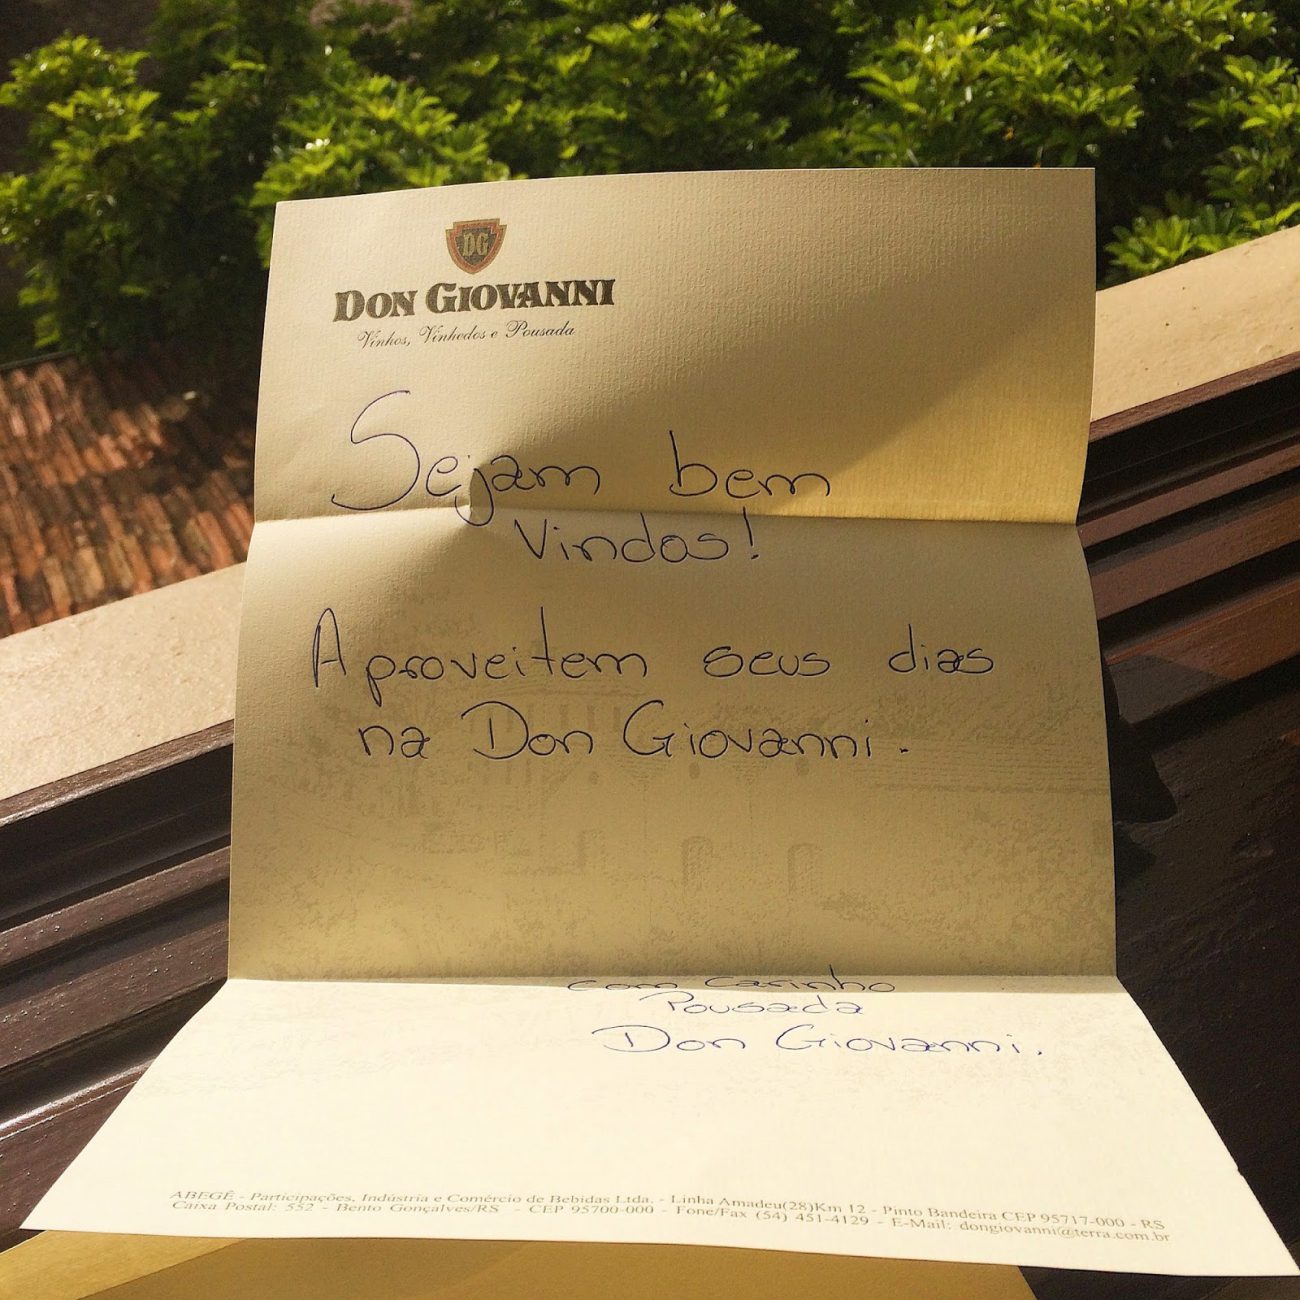 DG
DON GIOVANNI
Vinhos, Vinhedos e Pousada
Sejam bem
Vindos!
Aproveitem seus dias
na Don Giovanni.
com carinho
Pousada
Don Giovanni.
ABEGÊ - Participações, Indústria e Comércio de Bebidas Ltda. - Linha Amadeu(28)Km 12 - Pinto Bandeira CEP 95717-000 - RS
Caixa Postal: 552 - Bento Gonçalves/RS - CEP 95700-000 - Fone/Fax (54) 451-4129 - E-Mail: dongiovanni@terra.com.br